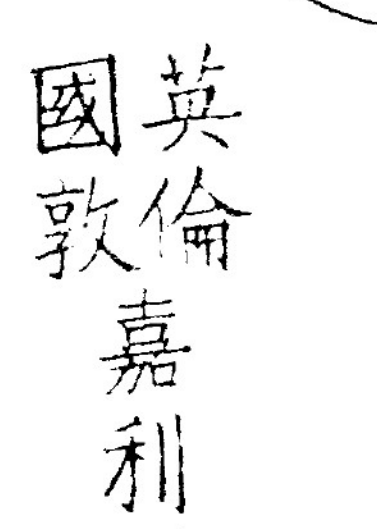 英國
倫敦
嘉利